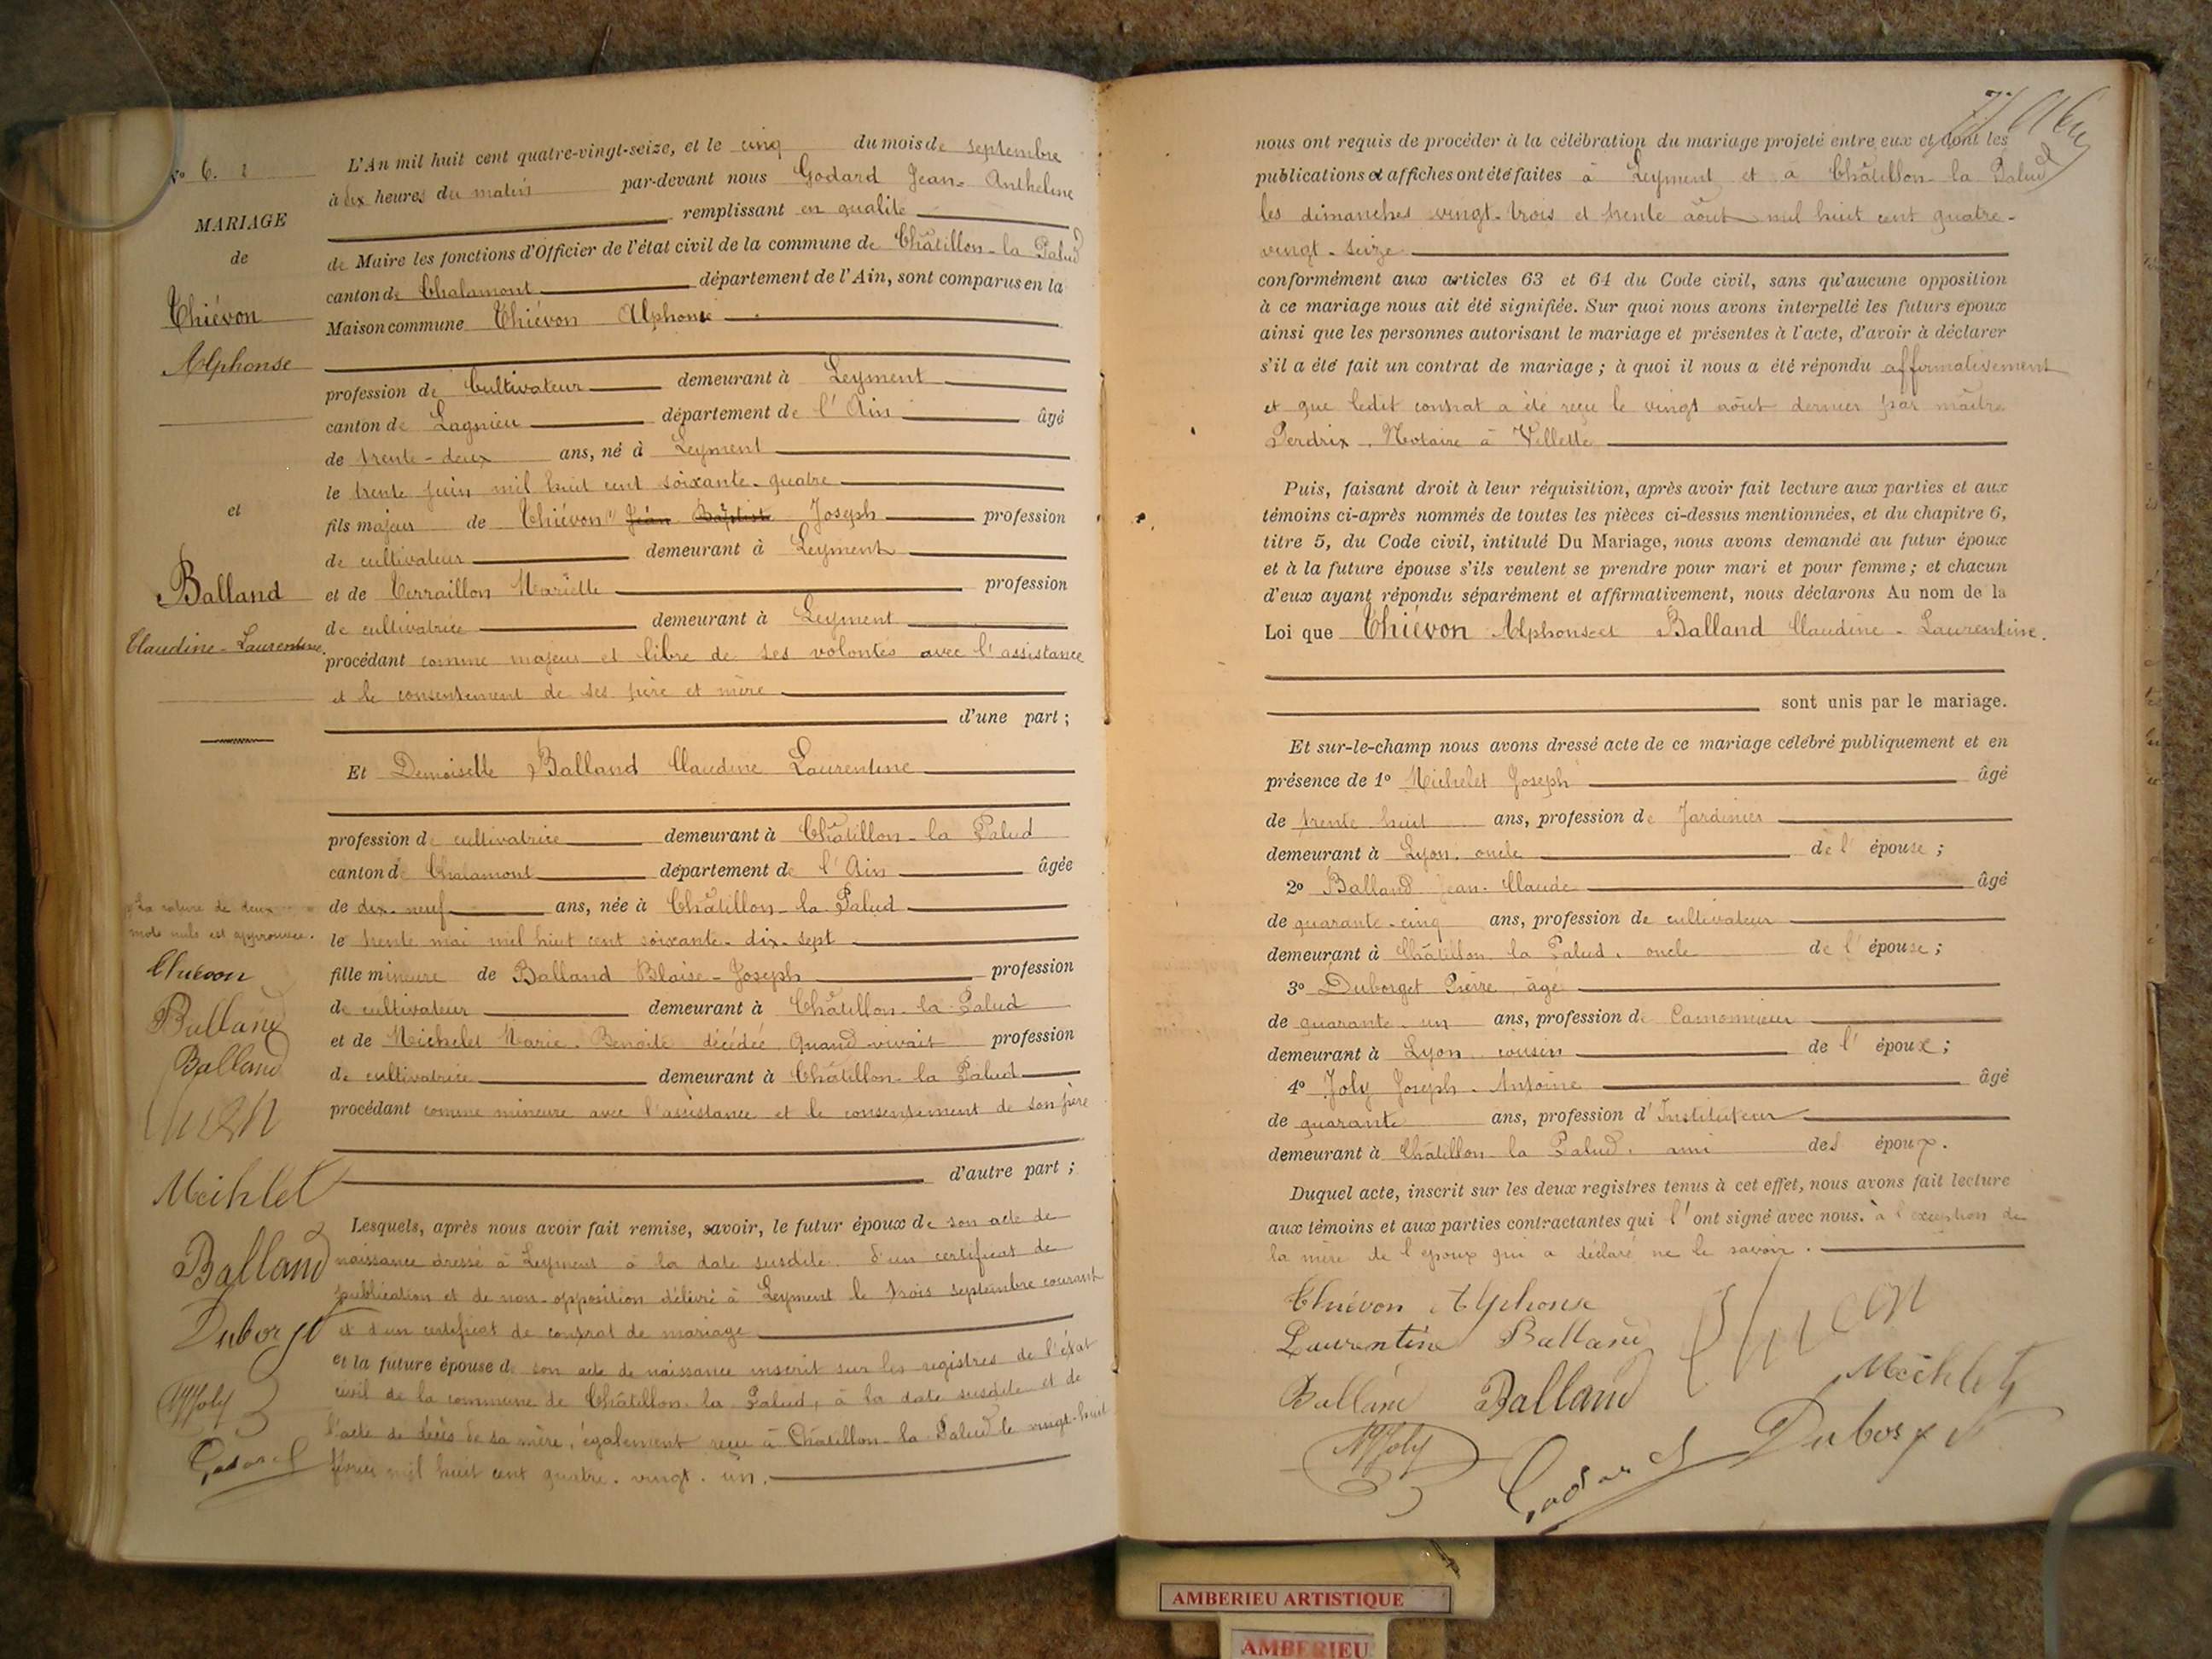 N° 6.
MARIAGE
de
Thiévon
Alphonse
et
Balland
Claudine-Laurentine.
La rature de deux
mots nuls est approuvée.
Thiévon
Balland
Balland
Michlet
Balland
Duborget
Joly
Godard
L'An mil huit cent quatre-vingt-seize, et le cinq du mois de septembre
à dix heures du matin par-devant nous Godard Jean-Anthelme
remplissant en qualité
de Maire les fonctions d'Officier de l'état civil de la commune de Châtillon-la Palud
canton de Chalamont département de l'Ain, sont comparus en la
Maison commune Thiévon Alphonse
profession de Cultivateur demeurant à Leyment
canton de Lagnieu département de l'Ain âgé
de trente-deux ans, né à Leyment
le trente juin mil huit cent soixante-quatre
fils majeur de Thiévon Jean Baptist Joseph profession
de cultivateur demeurant à Leyment
et de Terraillon Mariette profession
de cultivatrice demeurant à Leyment
procédant comme majeur et libre de ses volontés avec l'assistance
et le consentement de ses père et mère
d'une part ;
Et Demoiselle Balland Claudine Laurentine
profession de cultivatrice demeurant à Châtillon-la Palud
canton de Chalamont département de l'Ain âgée
de dix-neuf ans, née à Châtillon-la Palud
le trente mai mil huit cent soixante-dix-sept
fille mineure de Balland Blaise-Joseph profession
de cultivateur demeurant à Châtillon-la-Palud
et de Michelet Marie-Benoite décédée Quand vivait profession
de cultivatrice demeurant à Châtillon-la Palud
procédant comme mineure avec l'assistance et le consentement de son père
d'autre part ;
Lesquels, après nous avoir fait remise, savoir, le futur époux de son acte de
naissance dressé à Leyment à la date susdite. d'un certificat de
publication et de non-opposition délivré à Leyment le trois septembre courant
et d'un certificat de contrat de mariage
et la future épouse de son acte de naissance inscrit sur les registres de l'état
civil de la commune de Châtillon-la Palud, à la date susdite et de
l'acte de décès de sa mère, également reçu à Châtillon-la Palud le vingt-huit
février mil huit cent quatre-vingt-un.
nous ont requis de procéder à la célébration du mariage projeté entre eux et dont les
publications et affiches ont été faites à Leyment et à Châtillon-la Palud
les dimanches vingt-trois et trente août mil huit cent quatre-
vingt-seize
conformément aux articles 63 et 64 du Code civil, sans qu'aucune opposition
à ce mariage nous ait été signifiée. Sur quoi nous avons interpellé les futurs époux
ainsi que les personnes autorisant le mariage et présentes à l'acte, d'avoir à déclarer
s'il a été fait un contrat de mariage ; à quoi il nous a été répondu affirmativement
et que ledit contrat a été reçu le vingt août dernier par maître
Perdrix, Notaire à Villette
Puis, faisant droit à leur réquisition, après avoir fait lecture aux parties et aux
témoins ci-après nommés de toutes les pièces ci-dessus mentionnées, et du chapitre 6,
titre 5, du Code civil, intitulé Du Mariage, nous avons demandé au futur époux
et à la future épouse s'ils veulent se prendre pour mari et pour femme ; et chacun
d'eux ayant répondu séparément et affirmativement, nous déclarons Au nom de la
Loi que Thiévon Alphonse et Balland Claudine-Laurentine.
sont unis par le mariage.
Et sur-le-champ nous avons dressé acte de ce mariage célébré publiquement et en
présence de 1° Michelet Joseph âgé
de trente huit ans, profession de Jardinier
demeurant à Lyon, oncle de l'épouse ;
2° Balland Jean-Claude âgé
de quarante-cinq ans, profession de cultivateur
demeurant à Châtillon-la Palud, oncle de l'épouse ;
3° Duborget Pierre, âgé
de quarante-un ans, profession de Camionneur
demeurant à Lyon cousin de l'époux ;
4° Joly Joseph-Antoine âgé
de quarante ans, profession d'Instituteur
demeurant à Châtillon-la Palud, ami des époux.
Duquel acte, inscrit sur les deux registres tenus à cet effet, nous avons fait lecture
aux témoins et aux parties contractantes qui l'ont signé avec nous. à l'exception de
la mère de l'époux qui a déclaré ne le savoir.
Thiévon Alphonse
Laurentine Balland
Balland Balland Michlet
Joly Godard Duborget
AMBERIEU ARTISTIQUE
AMBERIEU